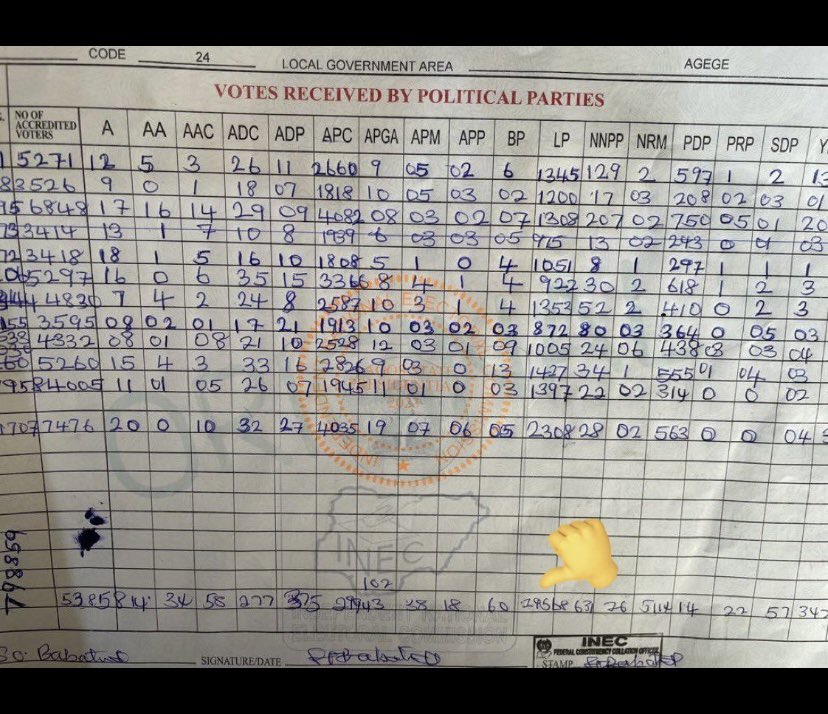 CODE 24 LOCAL GOVERNMENT AREA AGEGE
VOTES RECEIVED BY POLITICAL PARTIES
NO OF ACCREDITED VOTERS A AA AAC ADC ADP APC APGA APM APP BP LP NNPP NRM PDP PRP SDP
5271 12 5 3 26 11 2660 9 05 02 6 1345 129 2 597 1 2
3526 9 0 1 18 07 1818 10 05 03 02 1200 17 03 208 02 03 01
6848 17 16 14 29 09 4082 08 03 02 07 1308 207 02 750 05 01 20
3414 13 1 7 10 8 1939 6 03 03 05 915 13 02 243 0 03
3418 18 1 5 16 10 1808 5 1 0 4 1051 8 1 297 1 1 1
5297 16 0 6 35 15 3366 8 4 1 4 922 30 2 618 1 2 3
4830 7 4 2 24 8 2587 10 3 4 1353 52 2 410 0 2 3
3595 08 02 01 17 21 1913 10 03 02 03 872 80 03 364 0 05 03
4332 08 01 08 21 10 2528 12 03 01 09 1005 24 06 438 03 04
5260 15 4 3 33 16 2826 9 03 0 13 1427 34 1 555 01 04 03
4005 11 01 05 26 07 1945 11 01 0 03 1397 22 02 314 0 0 02
7476 20 0 10 32 27 4035 19 07 06 05 2308 28 02 563 0 0 04
INEC
798859
102
53858 34 58 277 38 18 60 22 57
Babatund SIGNATURE/DATE
INEC
FEDERAL CONSTITUENCY COLLATION OFFICER
STAMP